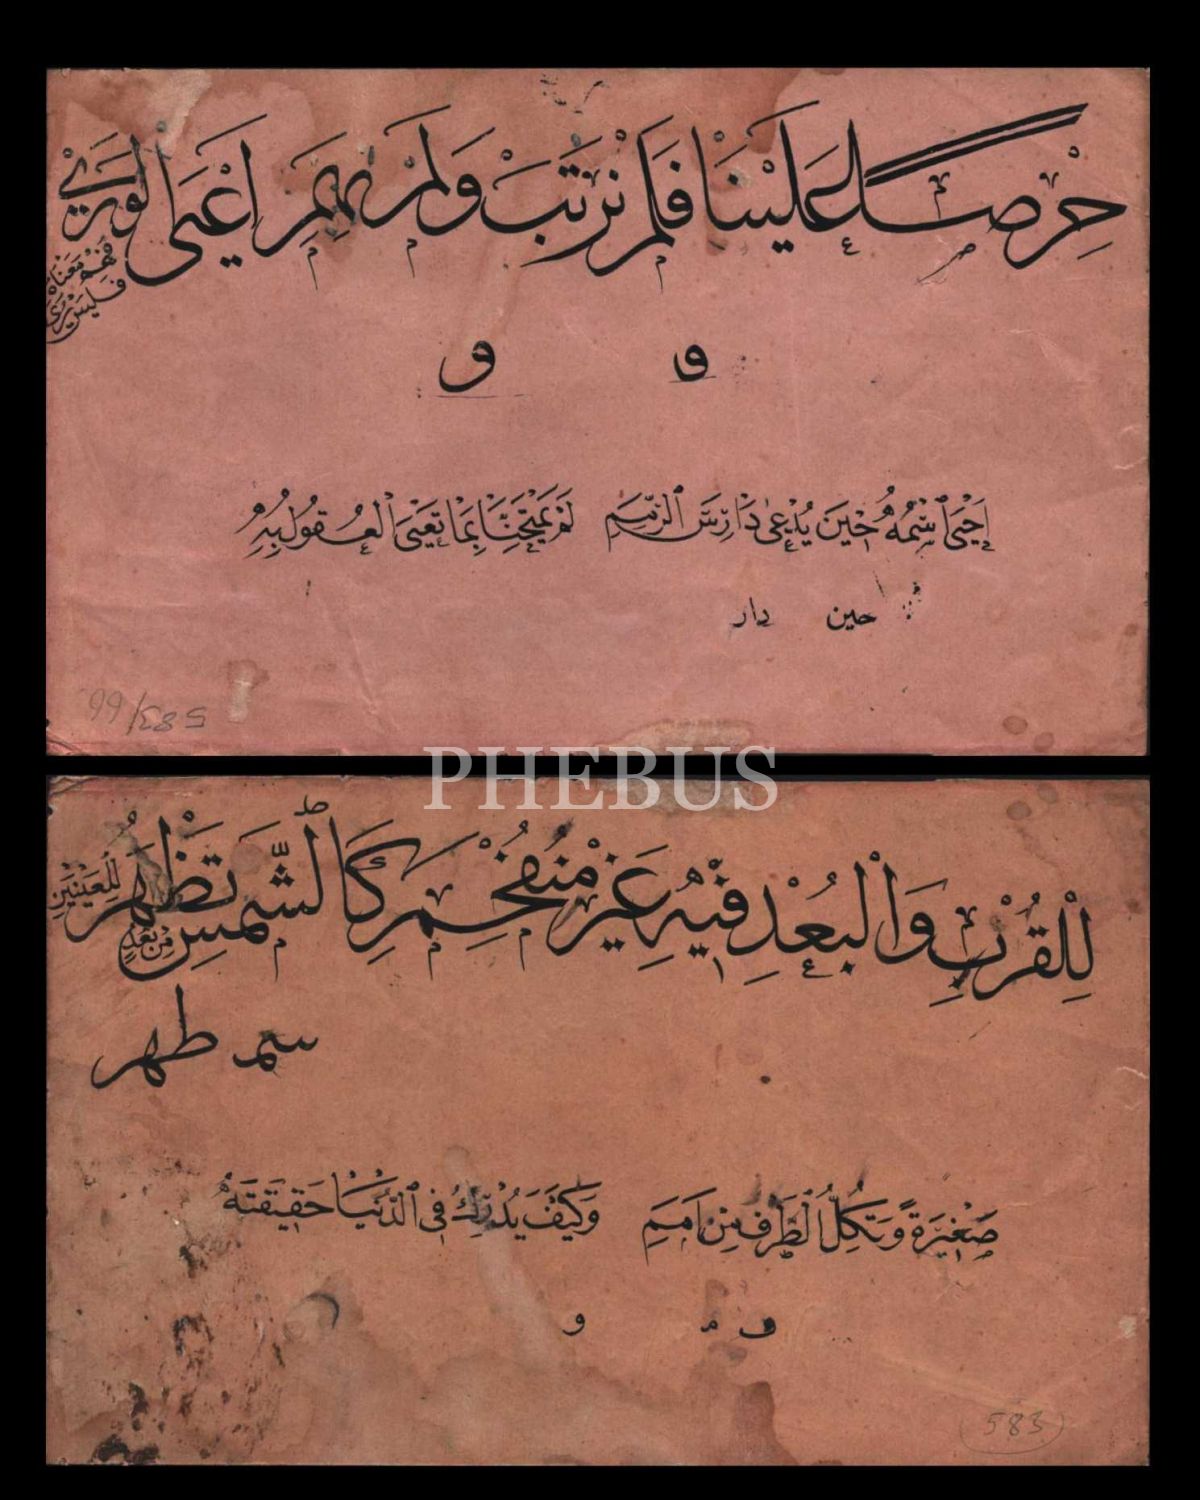 حِرْصًا عَلَيْنَا فَلَمْ نَرْتَبْ وَلَمْ نَهِمِ اَعْيَى الْوَرٰى
فَهْمُ مَعْنَاهُ
فَلَيْسَ يُرٰى
و و
اَحْيٰى اسْمُهُ حِينَ يُدْعٰى دَارِسَ الرِّمَمِ لَمْ يَمْتَحِنَّا بِمَا تَعْيَى الْعُقُولُ بِهِ
حين دار
583/66
PHEBUS
لِلْقُرْبِ وَالْبُعْدِ فِيهِ غَيْرُ مُنْفَحِمِ كَالشَّمْسِ تَظْهَرُ
لِلْعَيْنَيْنِ
مِنْ بُعُدٍ
سمـ طهر
صَغِيرَةً وَتُكِلُّ الطَّرْفَ مِنْ اَمَمِ وَكَيْفَ يُدْرِكُ فِى الدُّنْيَا حَقِيقَتَهُ
و
583